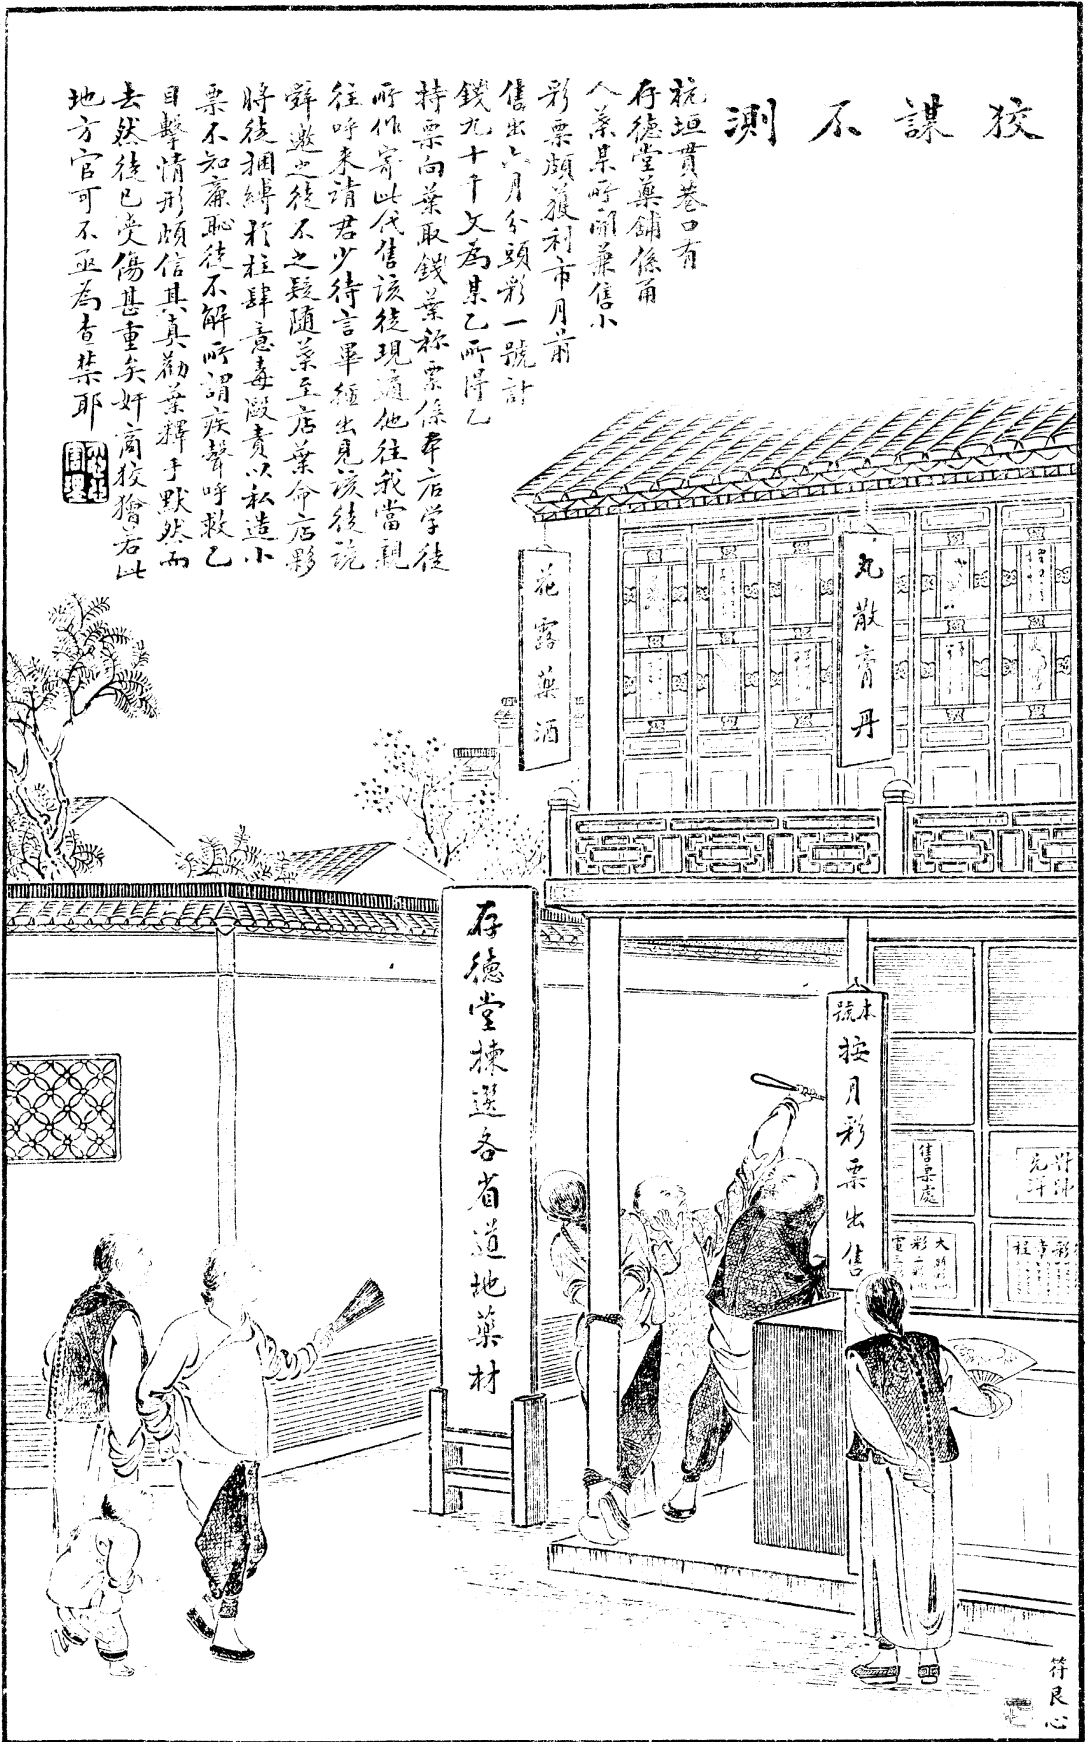 狡謀不測
杭垣貫巷口有
存德堂藥鋪係甬
人葉某所開兼售小
彩票頗獲利市月前
售出六月分頭彩一號計
錢九十千文為某乙所得乙
持票向葉取錢葉称票係本店学徒
所作寄此代售該徒現適他往我當親
往呼来請君少待言畢經出覓該徒詭
辭邀之徒不之疑随葉至店葉命店夥
將徒捆縛於柱肆意毒毆責以私造小
票不知廉恥徒不解所謂疾聲呼救乙
目擊情形頗信其真勸葉釋手默然而
去然徒已受傷甚重矣奸商狡獪若此
地方官可不亟為查禁耶
花露藥酒
丸散膏丹
存德堂揀選各省道地藥材
本號按月彩票出售
售票處
符艮心